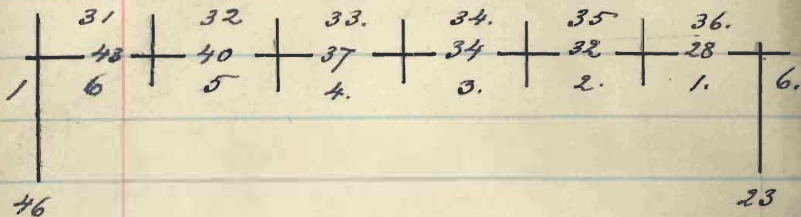 31 32 33. 34. 35 36.
43 40 37 34 32 28
1 6 5 4. 3. 2. 1. 6.
46 23